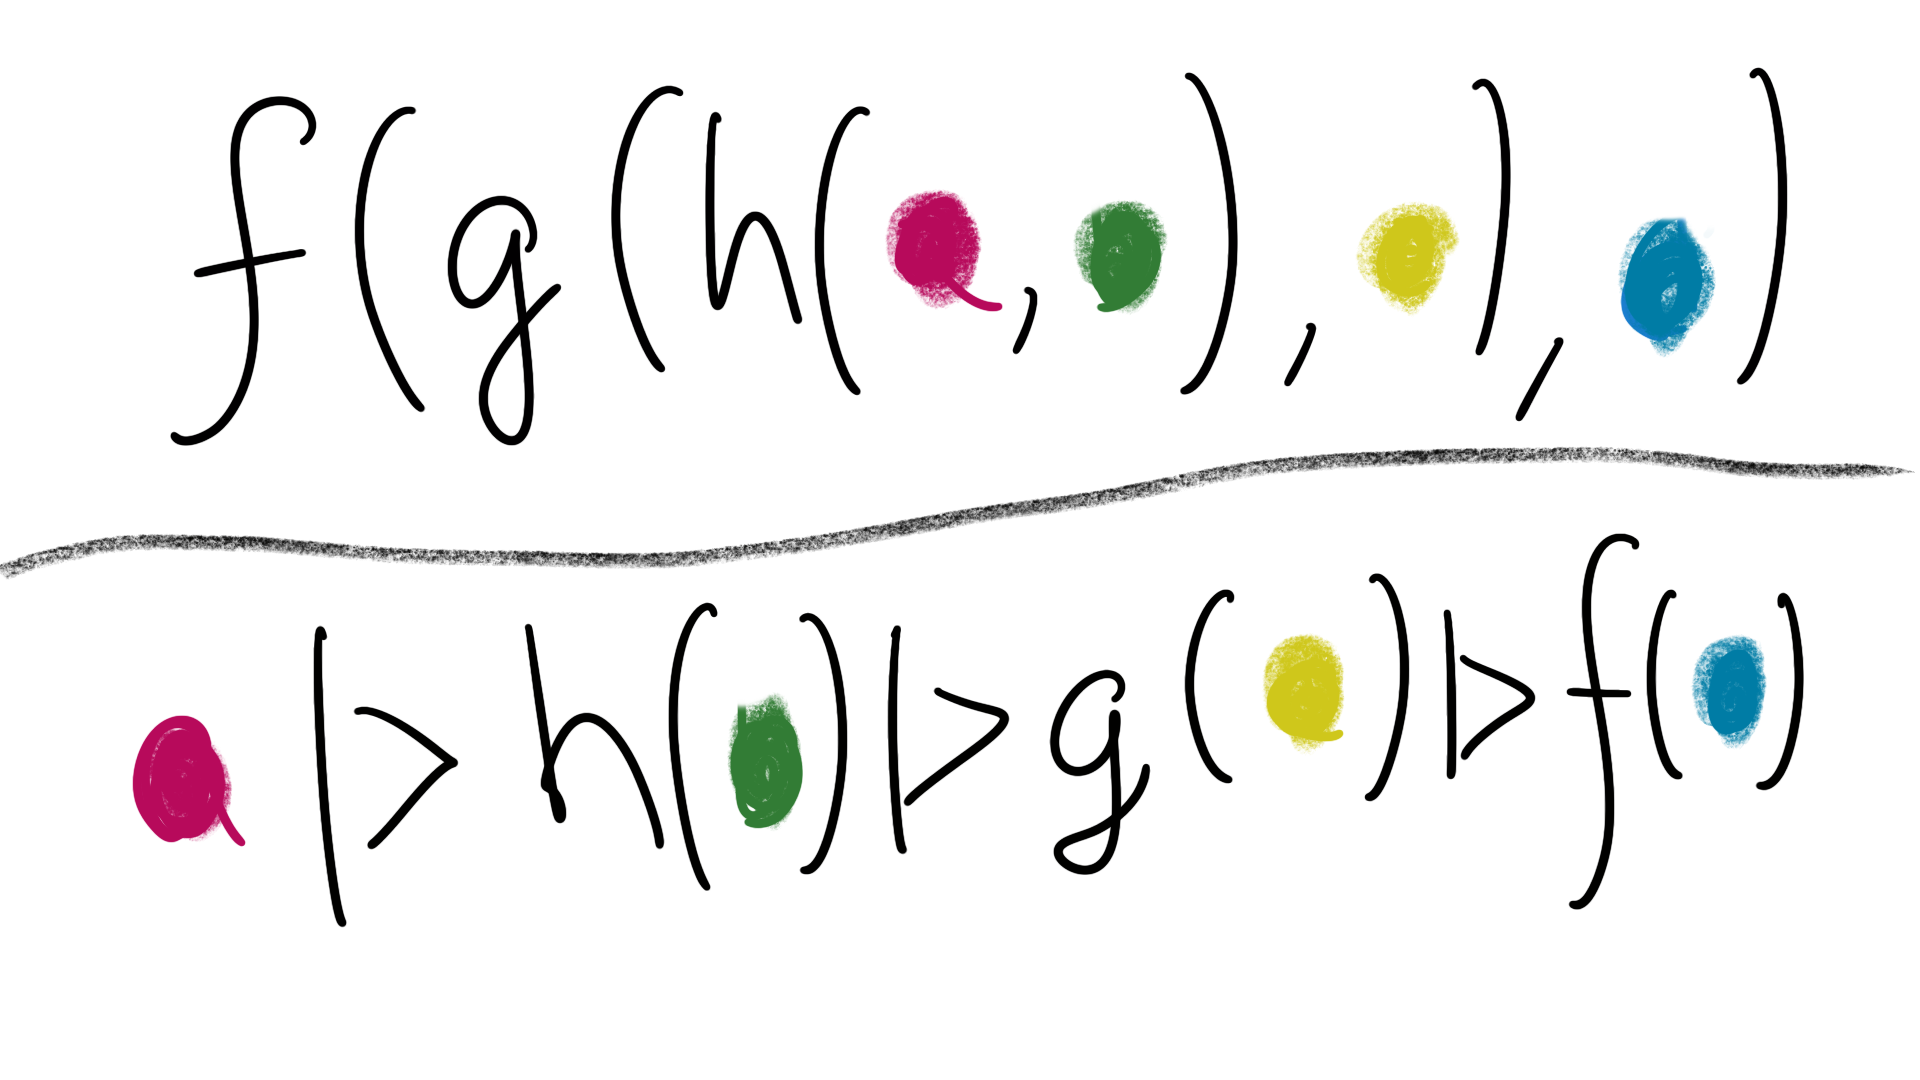 f(g(h( , ), ), )
|> h( ) |> g( ) |> f( )